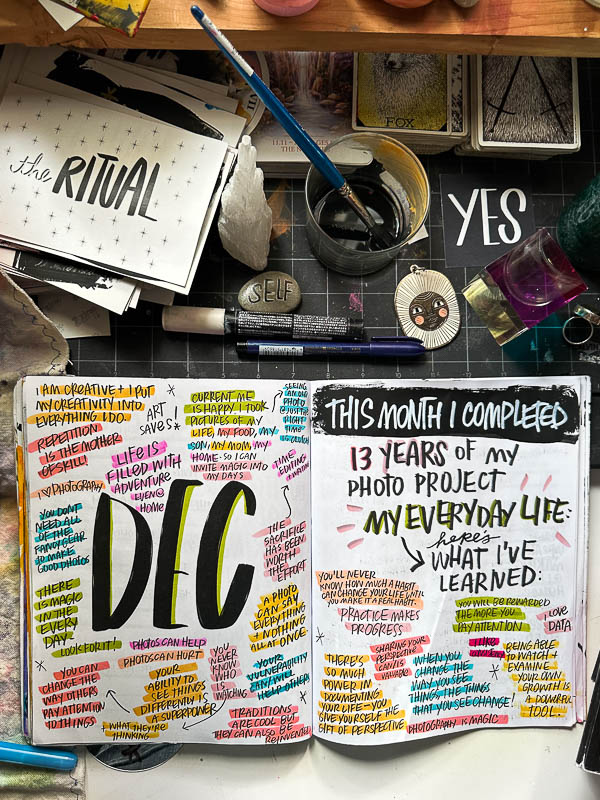 the RITUAL
FOX
YES
SELF
I AM CREATIVE + I PUT
MY CREATIVITY INTO
EVERYTHING I DO.
REPETITION
IS THE MOTHER
OF SKILL!
ART
SAVES!
CURRENT ME
IS HAPPY I TOOK
PICTURES OF MY
LIFE, MY FOOD, MY
SON, MY MOM, MY
HOME. SO I CAN
INVITE MAGIC INTO
MY DAYS
SEEING
AN OLD
PHOTO
@ JUST THE
RIGHT
TIME
IS
I ♡ PHOTOGRAPHY
LIFE IS
FILLED WITH
ADVENTURE
EVEN @
HOME
TIME
EDITING
YOU DON'T
NEED ALL
OF THE
FANCY GEAR
TO MAKE
GOOD PHOTOS
DEC
THE
SACRIFICE
HAS BEEN
WORTH
THE
EFFORT
THERE
IS MAGIC
IN THE
EVERY
DAY
LOOK FOR IT!
A PHOTO
CAN SAY
EVERYTHING
+ NOTHING
ALL AT ONCE.
PHOTOS CAN HELP
PHOTOS CAN HURT
YOU CAN
CHANGE THE
WAY OTHERS
PAY ATTENTION
TO THINGS
YOUR
ABILITY TO
SEE THINGS
DIFFERENTLY IS
A SUPERPOWER
YOU
NEVER
KNOW
WHO
IS
WATCHING
YOUR
VULNERABILITY
CAN/WILL
HELP OTHERS
WHAT THEY'RE
THINKING
TRADITIONS
ARE COOL BUT
THEY CAN ALSO BE
REINVENTED
THIS MONTH I COMPLETED
13 YEARS OF MY
PHOTO PROJECT
MY EVERYDAY LIFE:
here's
WHAT I'VE
LEARNED:
YOU'LL NEVER
KNOW HOW MUCH A HABIT
CAN CHANGE YOUR LIFE UNTIL
YOU MAKE IT A REAL HABIT.
PRACTICE MAKES
PROGRESS
YOU WILL BE REWARDED
THE MORE YOU
PAY ATTENTION
I LOVE
DATA
THERE'S
SO MUCH
POWER IN
DOCUMENTING
YOUR LIFE—YOU
GIVE YOURSELF THE
GIFT OF PERSPECTIVE
SHARING YOUR
PERSPECTIVE
CAN/IS
VALUABLE
WHEN YOU
CHANGE THE
WAY YOU SEE
THINGS THE THINGS
THAT YOU SEE CHANGE!
BEING ABLE
TO WATCH +
EXAMINE
YOUR OWN
GROWTH IS
A POWERFUL
TOOL.
PHOTOGRAPHY IS MAGIC